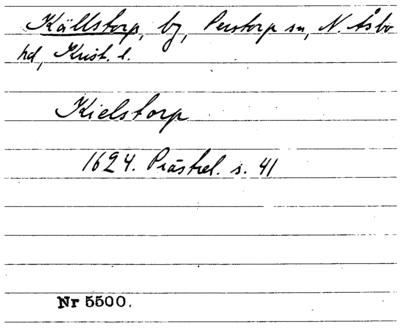 Källstorp, by, Perstorp sn, N. Åsbo
hd, Krist. l.
Kielstorp
1624. Prästrel. s. 41
Nr 5500.